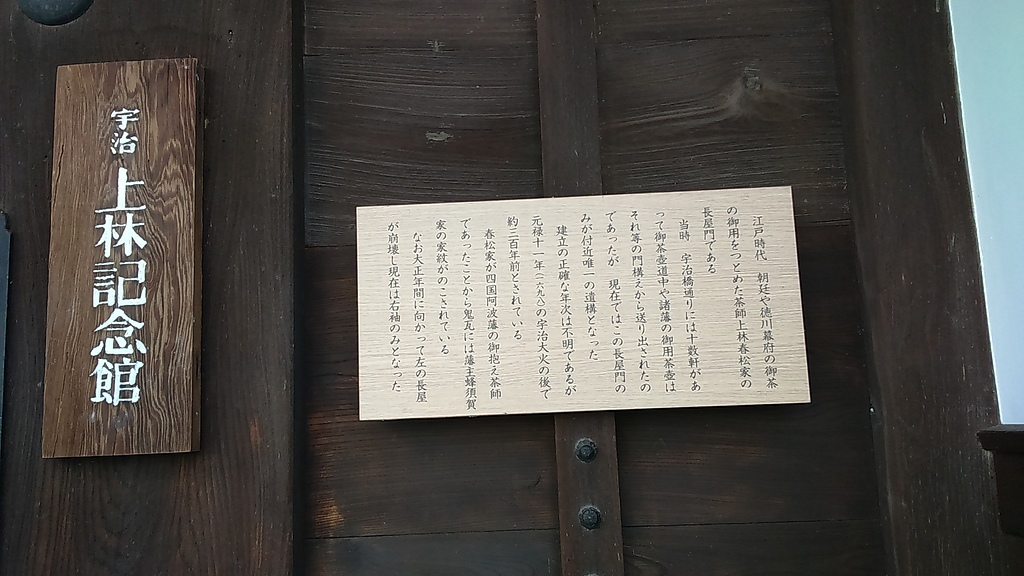 宇治 上林記念館
江戸時代 朝廷や徳川幕府の御茶
の御用をつとめた茶師上林春松家の
長屋門である
当時 宇治橋通りには十数軒があ
って御茶壺道中や諸藩の御用茶壺は
それ等の門構えから送り出されたの
であったが 現在ではこの長屋門の
みが付近唯一の遺構となった
建立の正確な年次は不明であるが
元禄十一年(一六九八)の宇治大火の後で
約三百年前とされている
春松家が四国阿波藩の御抱え茶師
であったことから鬼瓦には藩主蜂須賀
家の家紋がのこされている
なお大正年間に向かって左の長屋
が崩壊し現在は右袖のみとなった